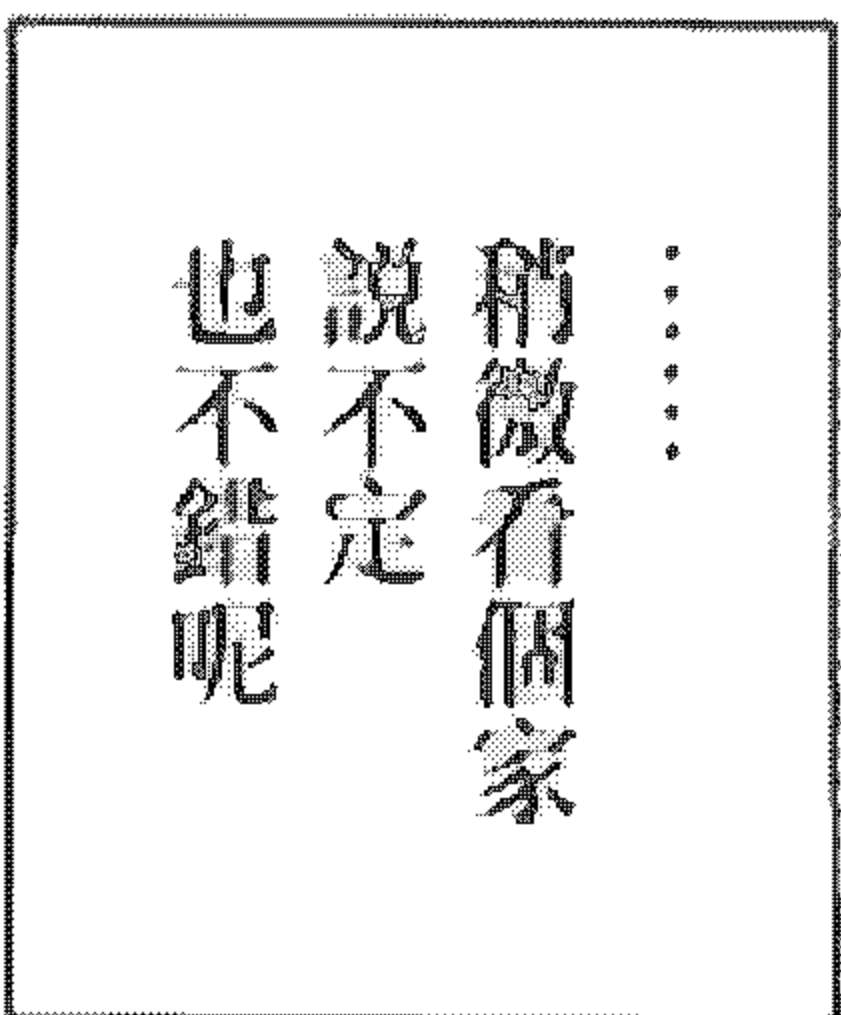 ……
稍微看個家
說不定
也不錯呢